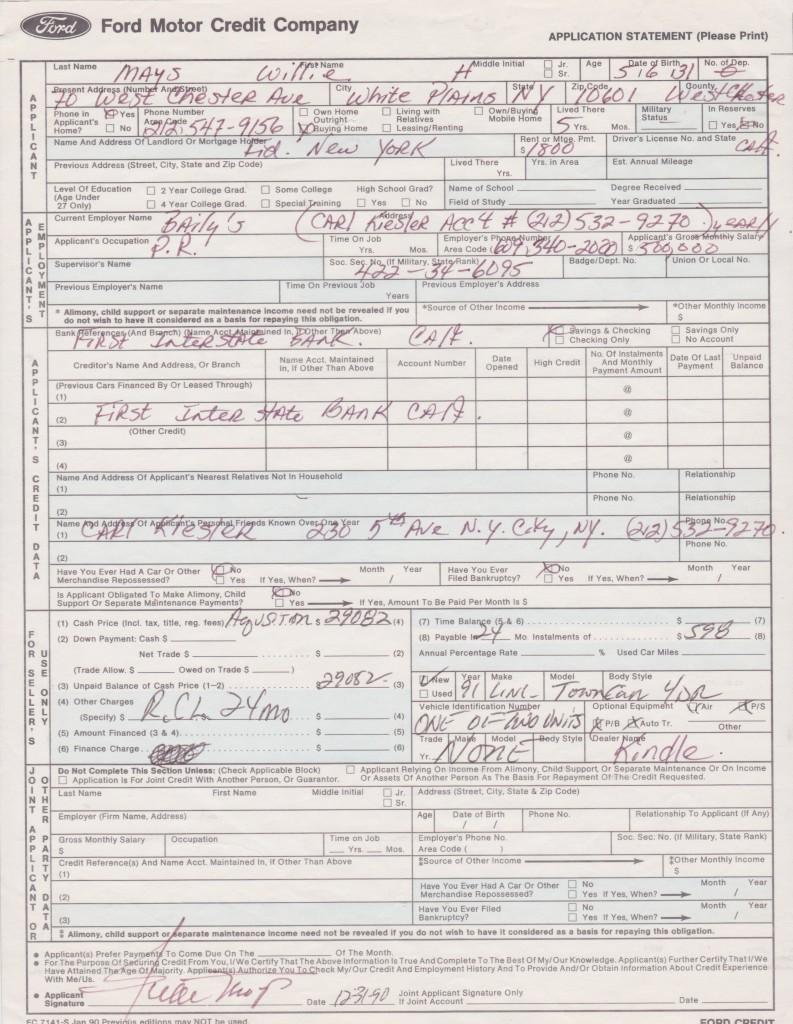 Ford Ford Motor Credit Company
APPLICATION STATEMENT (Please Print)
APPLICANT
Last Name First Name Middle Initial Jr. Sr. Age Date of Birth No. of Dep.
MAYS Willie H 5 16 131 0
Present Address (Number And Street) City State Zip Code County
70 West Chester Ave White Plains NY 10601 West Chester
Phone in Applicant's Home? Yes No Phone Number Area Code Own Home Outright Buying Home Living with Relatives Leasing/Renting Own/Buying Mobile Home Lived There Yrs. Mos. Military Status In Reserves Yes No
(212) 547-9156 5
Name And Address Of Landlord Or Mortgage Holder Rent or Mtge. Pmt. $ Driver's License No. and State
Fid. New York 1800 Calf.
Previous Address (Street, City, State and Zip Code) Lived There Yrs. Yrs. in Area Est. Annual Mileage
Level Of Education (Age Under 27 Only) 2 Year College Grad. 4 Year College Grad. Some College Special Training High School Grad? Yes No Name of School Degree Received
Field of Study Year Graduated
APPLICANT'S EMPLOYMENT
Current Employer Name Address
Baily's (CARL Kiesler Acct # (212) 532-9270.) yearly
Applicant's Occupation Time On Job Yrs. Mos. Employer's Phone Number Area Code Applicant's Gross Monthly Salary $
P.R. (609) 340-2000 500,000
Supervisor's Name Soc. Sec. No. (If Military, State Rank) Badge/Dept. No. Union Or Local No.
422-34-6095
Previous Employer's Name Time On Previous Job Years Previous Employer's Address
* Alimony, child support or separate maintenance income need not be revealed if you do not wish to have it considered as a basis for repaying this obligation. *Source of Other Income *Other Monthly Income $
APPLICANT'S CREDIT DATA
Bank References (And Branch) (Name Acct. Maintained In, If Other Than Above) Savings & Checking Checking Only Savings Only No Account
First Interstate Bank. Calf.
Creditor's Name And Address, Or Branch Name Acct. Maintained In, If Other Than Above Account Number Date Opened High Credit No. Of Instalments And Monthly Payment Amount Date Of Last Payment Unpaid Balance
(Previous Cars Financed By Or Leased Through)
(1) @
(2) First Inter state Bank Calf. @
(Other Credit)
(3) @
(4) @
Name And Address Of Applicant's Nearest Relatives Not In Household Phone No. Relationship
(1)
(2) Phone No. Relationship
Name And Address Of Applicant's Personal Friends Known Over One Year Phone No.
(1) CARL Kiesler 230 5th Ave N.Y. City, NY. (212) 532-9270.
(2) Phone No.
Have You Ever Had A Car Or Other Merchandise Repossessed? No Yes If Yes, When? Month / Year Have You Ever Filed Bankruptcy? No Yes If Yes, When? Month / Year
Is Applicant Obligated To Make Alimony, Child Support Or Separate Maintenance Payments? No Yes If Yes, Amount To Be Paid Per Month Is $
FOR SELLER'S USE ONLY
(1) Cash Price (Incl. tax, title, reg. fees) $ 29082 (4)
(2) Down Payment: Cash $
Net Trade $ $ (2)
(Trade Allow. $ Owed on Trade $ )
(3) Unpaid Balance of Cash Price (1-2) $ 29082- (3)
(4) Other Charges
(Specify) $ 24 mo $ (4)
(5) Amount Financed (3 & 4) $ (5)
(6) Finance Charge $ (6)
(7) Time Balance (5 & 6) $ (7)
(8) Payable In 24 Mo. Instalments of $ 598 (8)
Annual Percentage Rate % Used Car Miles
New Used Year Make Model Body Style
91 Linc- Town Car 4DR
Vehicle Identification Number Optional Equipment Air P/S P/B Auto Tr. Other
ONE OF TWO UNITS
Trade Yr. Make Model Body Style Dealer Name
NONE Kindle.
JOINT APPLICANT OR OTHER PARTY DATA
Do Not Complete This Section Unless: (Check Applicable Block)
Application Is For Joint Credit With Another Person, Or Guarantor.
Applicant Relying On Income From Alimony, Child Support, Or Separate Maintenance Or On Income Or Assets Of Another Person As The Basis For Repayment Of The Credit Requested.
Last Name First Name Middle Initial Jr. Sr. Address (Street, City, State & Zip Code)
Employer (Firm Name, Address) Age Date of Birth / / Phone No. Relationship To Applicant (If Any)
Gross Monthly Salary $ Occupation Time on Job Yrs. Mos. Employer's Phone No. Area Code ( ) Soc. Sec. No. (If Military, State Rank)
Credit Reference(s) And Name Acct. Maintained In, If Other Than Above ‡Source of Other Income ‡Other Monthly Income $
(1)
(2) Have You Ever Had A Car Or Other Merchandise Repossessed? No Yes If Yes, When? Month / Year
(3) Have You Ever Filed Bankruptcy? No Yes If Yes, When? Month / Year
‡ Alimony, child support or separate maintenance income need not be revealed if you do not wish to have it considered as a basis for repaying this obligation.
• Applicant(s) Prefer Payments To Come Due On The Of The Month.
• For The Purpose Of Securing Credit From You, I/We Certify That The Above Information Is True And Complete To The Best Of My/Our Knowledge. Applicant(s) Further Certify That I/We
Have Attained The Age Of Majority. Applicant(s) Authorize You To Check My/Our Credit And Employment History And To Provide And/Or Obtain Information About Credit Experience
With Me/Us.
• Applicant Signature Willie Mays Date 12-31-90 Joint Applicant Signature Only If Joint Account Date
FC 7141-S Jan 90 Previous editions may NOT be used. FORD CREDIT